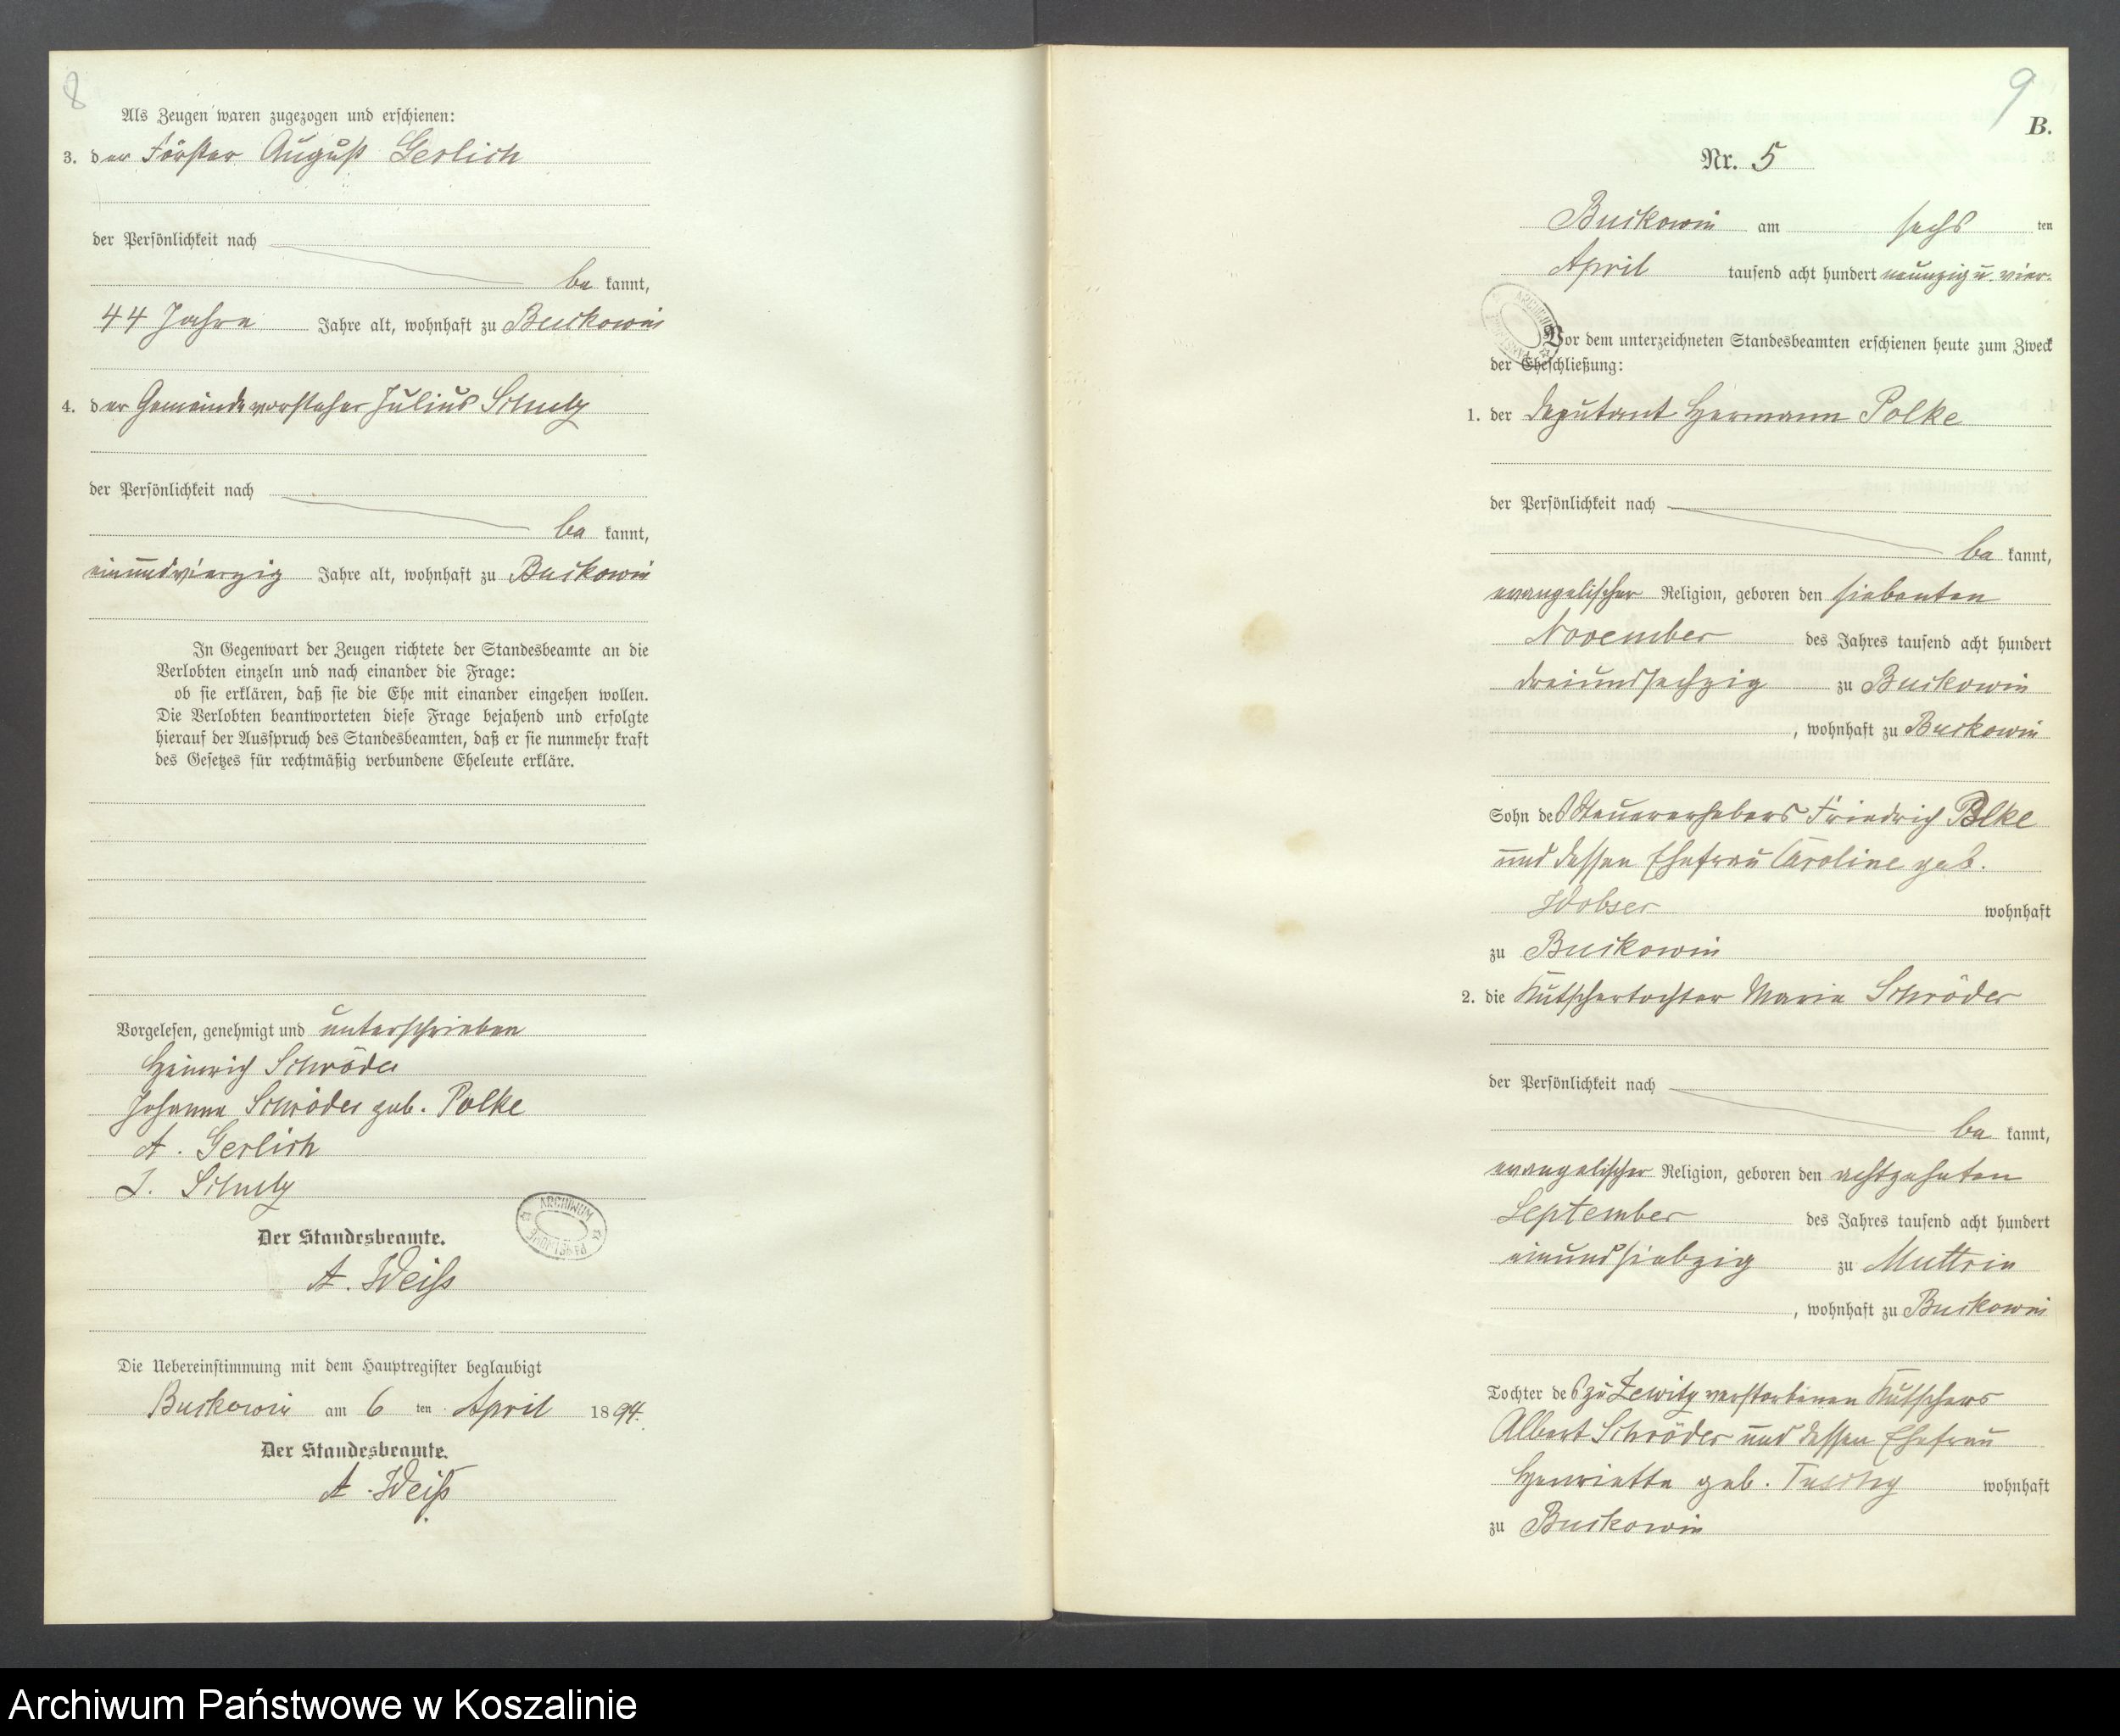 8
Als Zeugen waren zugezogen und erschienen:
3. der Förster August Gerlich
der Persönlichkeit nach
be kannt,
44 Jahre Jahre alt, wohnhaft zu Buckowin
4. der Gemeindevorsteher Julius Schulz
der Persönlichkeit nach
be kannt,
einundvierzig Jahre alt, wohnhaft zu Buckowin
In Gegenwart der Zeugen richtete der Standesbeamte an die
Verlobten einzeln und nach einander die Frage:
ob sie erklären, daß sie die Ehe mit einander eingehen wollen.
Die Verlobten beantworteten diese Frage bejahend und erfolgte
hierauf der Ausspruch des Standesbeamten, daß er sie nunmehr kraft
des Gesetzes für rechtmäßig verbundene Eheleute erkläre.
Vorgelesen, genehmigt und unterschrieben
Heinrich Schröder
Johanna Schröder geb. Polke
A. Gerlich
J. Schulz
ARCHIWUM
Der Standesbeamte.
A. Weiß
Die Uebereinstimmung mit dem Hauptregister beglaubigt
Buckowin am 6 ten April 1894.
Der Standesbeamte.
A. Weiß
9
B.
Nr. 5
Buckowin am sechs ten
April tausend acht hundert neunzig u. vier.
ARCHIWUM
Vor dem unterzeichneten Standesbeamten erschienen heute zum Zweck
der Eheschließung:
1. der Deputant Hermann Polke
der Persönlichkeit nach
be kannt,
evangelischer Religion, geboren den siebenten
November des Jahres tausend acht hundert
dreiundsechzig zu Buckowin
, wohnhaft zu Buckowin
Sohn des Steuererhebers Friedrich Polke
und dessen Ehefrau Caroline geb.
Wobser wohnhaft
zu Buckowin
2. die Kutschertochter Marie Schröder
der Persönlichkeit nach
be kannt,
evangelischer Religion, geboren den achtzehnten
September des Jahres tausend acht hundert
einundsiebzig zu Muttrin
, wohnhaft zu Buckowin
Tochter des zu Zewitz verstorbenen Kutschers
Albert Schröder und dessen Ehefrau
Henriette geb. wohnhaft
zu Buckowin
Archiwum Państwowe w Koszalinie